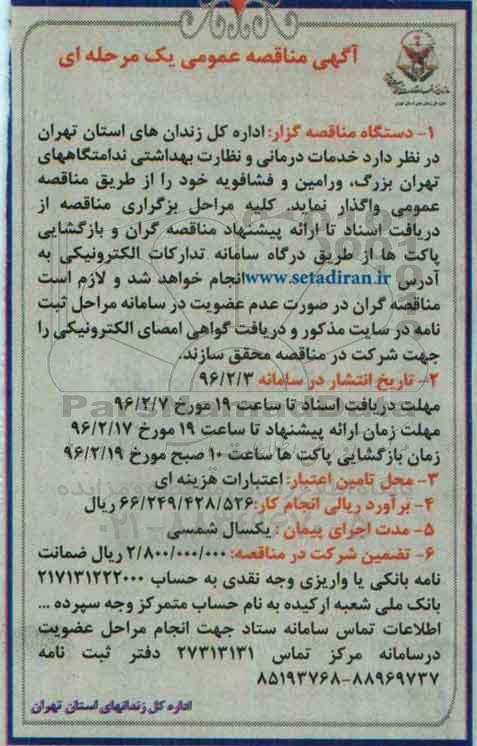 آگهی مناقصه عمومی یک مرحله ای
۱- دستگاه مناقصه گزار: اداره کل زندان های استان تهران
در نظر دارد خدمات درمانی و نظارت بهداشتی ندامتگاههای
تهران بزرگ، ورامین و فشافویه خود را از طریق مناقصه
عمومی واگذار نماید. کلیه مراحل برگزاری مناقصه از
دریافت اسناد تا ارائه پیشنهاد مناقصه گران و بازگشایی
پاکت ها از طریق درگاه سامانه تدارکات الکترونیکی به
آدرس www.setadiran.ir انجام خواهد شد و لازم است
مناقصه گران در صورت عدم عضویت در سامانه مراحل ثبت
نامه در سایت مذکور و دریافت گواهی امضای الکترونیکی را
جهت شرکت در مناقصه محقق سازند.
۲- تاریخ انتشار در سامانه ۹۶/۲/۳
مهلت دریافت اسناد تا ساعت ۱۹ مورخ ۹۶/۲/۷
مهلت زمان ارائه پیشنهاد تا ساعت ۱۹ مورخ ۹۶/۲/۱۷
زمان بازگشایی پاکت ها ساعت ۱۰ صبح مورخ ۹۶/۲/۱۹
۳- محل تامین اعتبار: اعتبارات هزینه ای
۴- برآورد ریالی انجام کار: ۶۶/۲۴۹/۴۲۸/۵۲۶ ریال
۵- مدت اجرای پیمان : یکسال شمسی
۶- تضمین شرکت در مناقصه: ۲/۸۰۰/۰۰۰/۰۰۰ ریال ضمانت
نامه بانکی یا واریزی وجه نقدی به حساب ۲۱۷۱۳۱۲۲۲۰۰۰
بانک ملی شعبه ارکیده به نام حساب متمرکز وجه سپرده ...
اطلاعات تماس سامانه ستاد جهت انجام مراحل عضویت
درسامانه مرکز تماس ۲۷۳۱۳۱۳۱ دفتر ثبت نامه
۸۸۹۶۹۷۳۷-۸۵۱۹۳۷۶۸
اداره کل زندانهای استان تهران